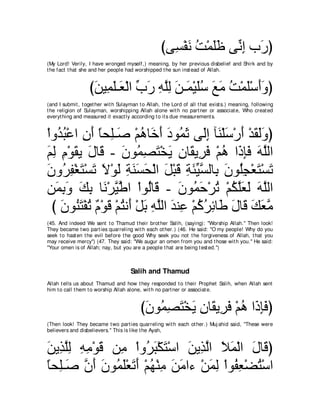 (رَبِّ إِنِّى ظَلَمْتُ نَفْسِى)
(My Lord! Verily, I have wronged myself,) meaning, by her previous disbelief and Shirk and by
the fact that she and her people had worshipped the sun instead of Allah.
(وَأَسْلَمْتُ مَعَ سُلَيْمَـنَ لِلَّهِ رَبِّ الْعَـلَمِينَ)
(and I submit, together with Sulayman to Allah, the Lord of all that exists.) meaning, following
the religion of Sulayman, worshipping Allah alone with no partner or associate, Who created
everything and measured it exactly according to its due measurements.
(وَلَقَدْ أَرْسَلْنَآ إِلَى ثَمُودَ أَخَاهُمْ صَـلِحاً أَنِ اعْبُدُواْ
اللَّهَ فَإِذَا هُمْ فَرِيقَانِ يَخْتَصِمُونَ - قَالَ يقَوْمِ لِمَ
تَسْتَعْجِلُونَ بِالسَّيِّئَةِ قَبْلَ الْحَسَنَةِ لَوْلاَ تَسْتَغْفِرُونَ
اللَّهَ لَعَلَّكُمْ تُرْحَمُونَ - قَالُواْ اطَّيَّرْنَا بِكَ وَبِمَن
مَّعَكَ قَالَ طَائِرُكُمْ عِندَ اللَّهِ بَلْ أَنتُمْ قَوْمٌ تُفْتَنُونَ )
(45. And indeed We sent to Thamud their brother Salih, (saying): "Worship Allah." Then look!
They became two parties quarreling with each other.) (46. He said: "O my people! Why do you
seek to hasten the evil before the good Why seek you not the forgiveness of Allah, that you
may receive mercy'') (47. They said: "We augur an omen from you and those with you.'' He said:
"Your omen is of Allah; nay, but you are a people that are being tested.'')
Salih and Thamud
Allah tells us about Thamud and how they responded to their Prophet Salih, when Allah sent
him to call them to worship Allah alone, with no partner or associate.
(فَإِذَا هُمْ فَرِيقَانِ يَخْتَصِمُونَ)
(Then look! They became two parties quarreling with each other.) Mujahid said, "These were
believers and disbelievers.'' This is like the Ayah,
(قَالَ الْمَلأ الَّذِينَ اسْتَكْبَرُواْ مِن قَوْمِهِ لِلَّذِينَ
اسْتُضْعِفُواْ لِمَنْ ءامَنَ مِنْهُمْ أَتَعْلَمُونَ أَنَّ صَـلِحاً